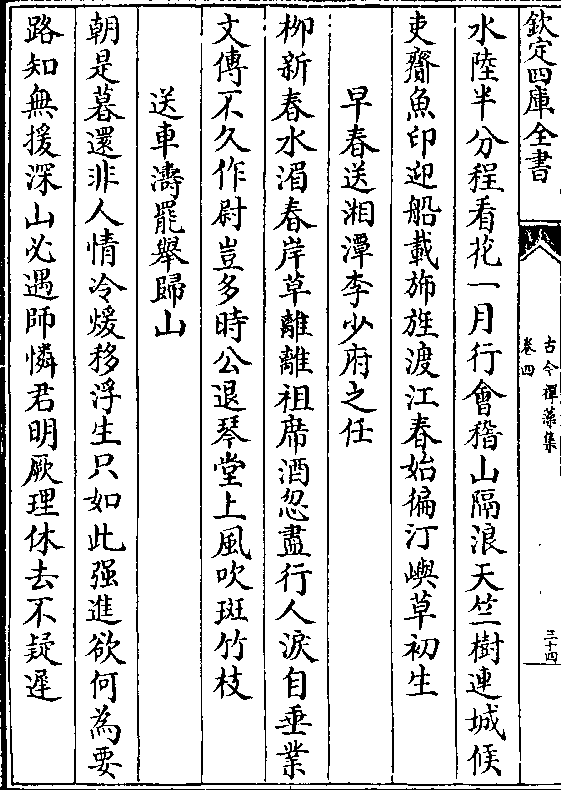 欽定四庫全書
古今禪藻集
卷四
三十四
水陸半分程看花一月行會稽山隔浪天竺樹連城候
吏齎魚印迎船載斾旌渡江春始徧汀嶼草初生
早春送湘潭李少府之任
栁新春水湄春岸草離離祖席酒忽盡行人淚自垂業
文傳不久作尉豈多時公退琴堂上風吹斑竹枝
送車濤罷舉歸山
朝是暮還非人情冷煖移浮生只如此强進欲何為要
路知無援深山必遇師憐君明厥理休去不疑遲